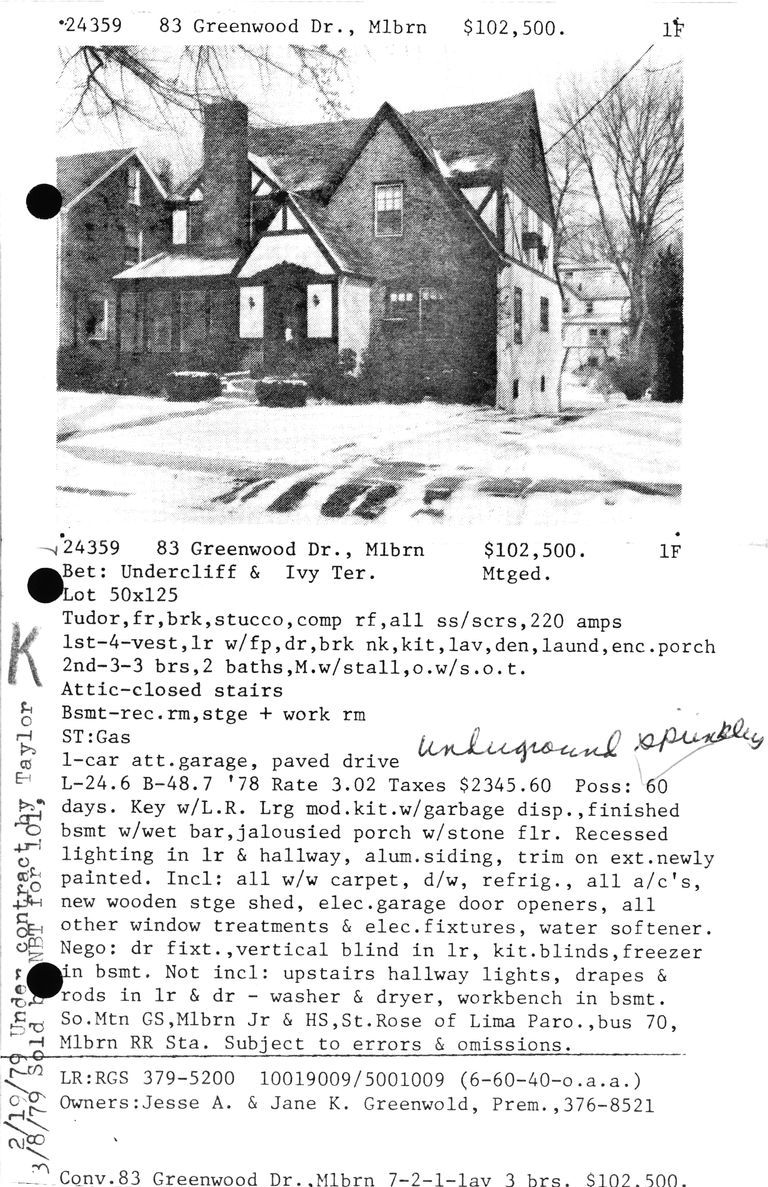 24359 83 Greenwood Dr., Mlbrn $102,500. 1F
24359 83 Greenwood Dr., Mlbrn $102,500. 1F
Bet: Undercliff & Ivy Ter. Mtged.
Lot 50x125
Tudor,fr,brk,stucco,comp rf,all ss/scrs,220 amps
1st-4-vest,lr w/fp,dr,brk nk,kit,lav,den,laund,enc.porch
2nd-3-3 brs,2 baths,M.w/stall,o.w/s.o.t.
Attic-closed stairs
Bsmt-rec.rm,stge + work rm
ST:Gas
underground sprinklers
1-car att.garage, paved drive
L-24.6 B-48.7 '78 Rate 3.02 Taxes $2345.60 Poss: 60
days. Key w/L.R. Lrg mod.kit.w/garbage disp.,finished
bsmt w/wet bar,jalousied porch w/stone flr. Recessed
lighting in lr & hallway, alum.siding, trim on ext.newly
painted. Incl: all w/w carpet, d/w, refrig., all a/c's,
new wooden stge shed, elec.garage door openers, all
other window treatments & elec.fixtures, water softener.
Nego: dr fixt.,vertical blind in lr, kit.blinds,freezer
in bsmt. Not incl: upstairs hallway lights, drapes &
rods in lr & dr - washer & dryer, workbench in bsmt.
So.Mtn GS,Mlbrn Jr & HS,St.Rose of Lima Paro.,bus 70,
Mlbrn RR Sta. Subject to errors & omissions.
LR:RGS 379-5200 10019009/5001009 (6-60-40-o.a.a.)
Owners:Jesse A. & Jane K. Greenwold, Prem.,376-8521
Conv.83 Greenwood Dr.,Mlbrn 7-2-1-lav 3 brs. $102,500.
K
2/19/79 Under contract by Taylor
3/8/79 Sold NBT for 101,